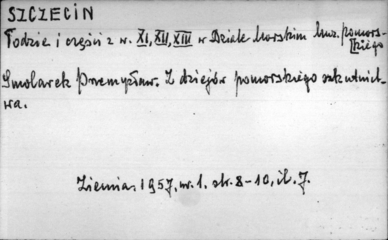 SZCZECIN
Łodzie i części z w. XI, XII, XIII w Dziale Morskim Muz. pomors-
kiego
Smolarek Przemysław. Z dziejów pomorskiego szkutnict-
wa.
Ziemia. 1957, nr. 1. str. 8-10, il. 7.